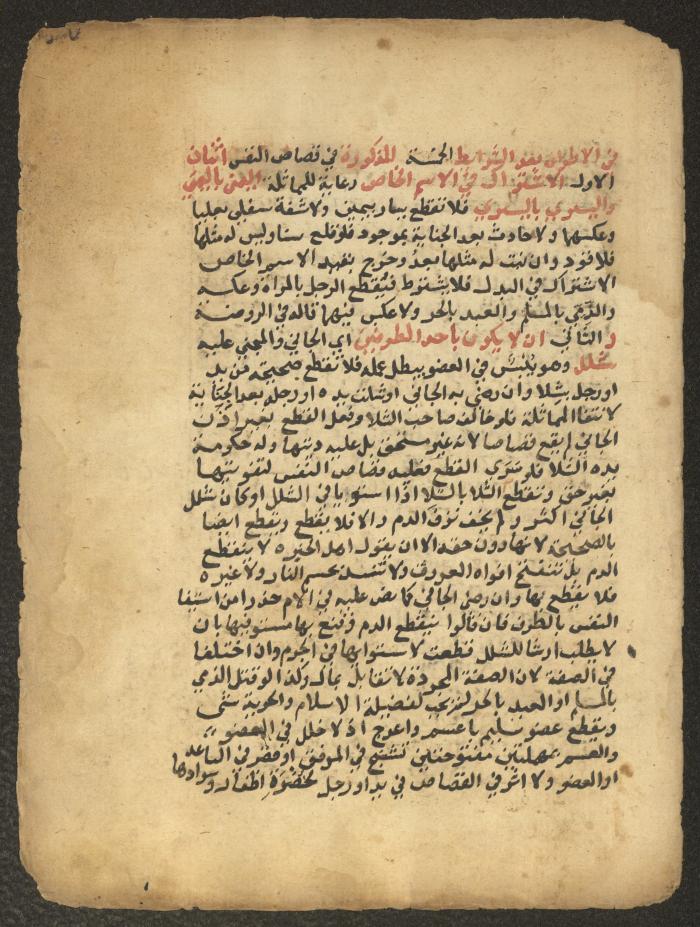 في الاطراف بعد الشرايط الخمسة المذكورة في قصاص النفس اثنان
الاول الاشتراك في الاسم الخاص رعاية للمماثلة اليمنى باليمنى
واليسرى باليسرى فلا تقطع يسار بيمين ولا شفة سفلى بعليا
وعكسهما ولا حادث بعد الجناية بموجود فلو قلع سنا وليس له مثلها
فلا قود وان نبت له مثلها بعد وخرج بقيد الاسم الخاص
الاشتراك في البدل فلا يشترط فيقطع الرجل بالمراة وعكسه
والذمي بالمسلم والعبد بالحر ولا عكس فيهما قاله في الروضة
والثاني ان لا يكون باحد الطرفين اي الجاني والمجني عليه
شلل وهو يبس في العضو يبطل عمله فلا تقطع صحيحة من يد
او رجل بشلا وان رضي به الجاني او شلت يده او رجله بعد الجناية
لانتفا المماثلة فلو خالف صاحب الشلا وفعل القطع بغير اذن
الجاني لم يقع قصاصا لانه غير مستحق بل عليه ديتها وله حكومة
يده الشلا فلو سرى القطع فعليه قصاص النفس لتفويتها
بغير حق وتقطع الشلا بالشلا اذا استويا في الشلل او كان شلل
الجاني اكثر ولم يخف نزف الدم والا فلا يقطع وتقطع ايضا
بالصحيحة لانها دون حقه الا ان يقول اهل الخبرة لا ينقطع
الدم بل تنفتح افواه العروق ولا تنسد بحسم النار ولا غيره
فلا يقطع بها وان رضي الجاني كما نص عليه في الام حذرا من استيفا
النفس بالطرف فان قالوا ينقطع الدم وقنع بها مستوفيها بان
لا يطلب ارشا للشلل قطعت لاستوايهما في الجرم وان اختلفا
في الصفة لان الصفة المجردة لا تقابل بمال وكذا لو قتل الذمي
بالمسلم او العبد بالحر لم يجب لفضيلة الاسلام والحرية شي
ويقطع عضو سليم باعسم واعرج اذ لا خلل في العضو
والعسم بمهملتين مفتوحتين تشنج في المرفق او قصر في الساعد
او العضو ولا اثر في القصاص في يد او رجل لخضرة اظفار وسوادها